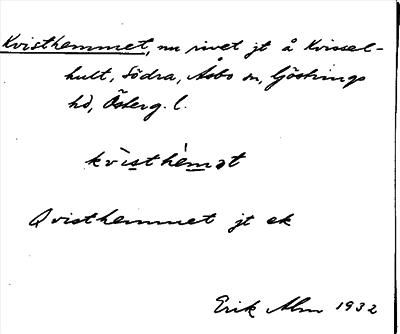 Kvisthemmet, nu rivet jt å Kvissel-
hult, Södra, Åsbo sn, Göstrings
hd, Österg. l.
kvìsthèmət
Qvisthemmet jt ek
Erik Alm 1932